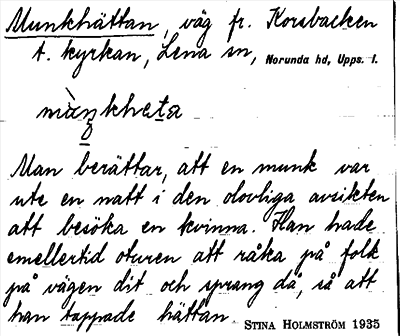 Munkhättan, väg fr. Korsbacken
t. kyrkan, Lena sn, Norunda hd, Upps. l.
Man berättar, att en munk var
ute en natt i den olovliga avsikten
att besöka en kvinna. Han hade
emellertid oturen att råka på folk
på vägen dit och sprang då, så att
han tappade hättan. STINA HOLMSTRÖM 1935